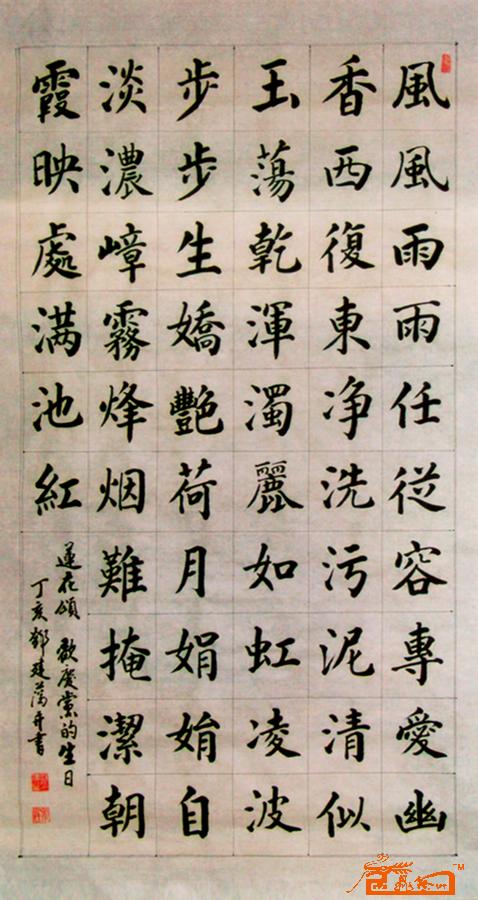 風風雨雨任從容專愛幽
香西復東净洗污泥清似
玉蕩乾渾濁麗如虹凌波
步步生嬌艷荷月娟娟自
淡濃嶂霧烽烟難掩潔朝
霞映處满池紅
蓮花頌 歡慶黨的生日
丁亥鄧建萍并書